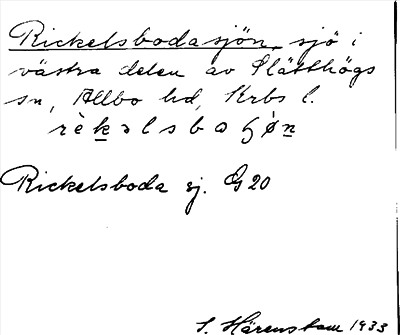 Rickelsbodasjön, sjö i
västra delen av Slätthögs
sn, Allbo hd, Krbs l.
rèkəlsboɧøn
Rickelsboda sj. G20
S. Härenstam 1933